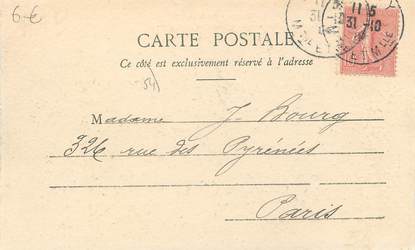 6.€
11 15
31 -10
CARTE POSTALE
Ce côté est exclusivement réservé à l'adresse
54
Madame J. Bourg
326 rue des Pyrénées
Paris